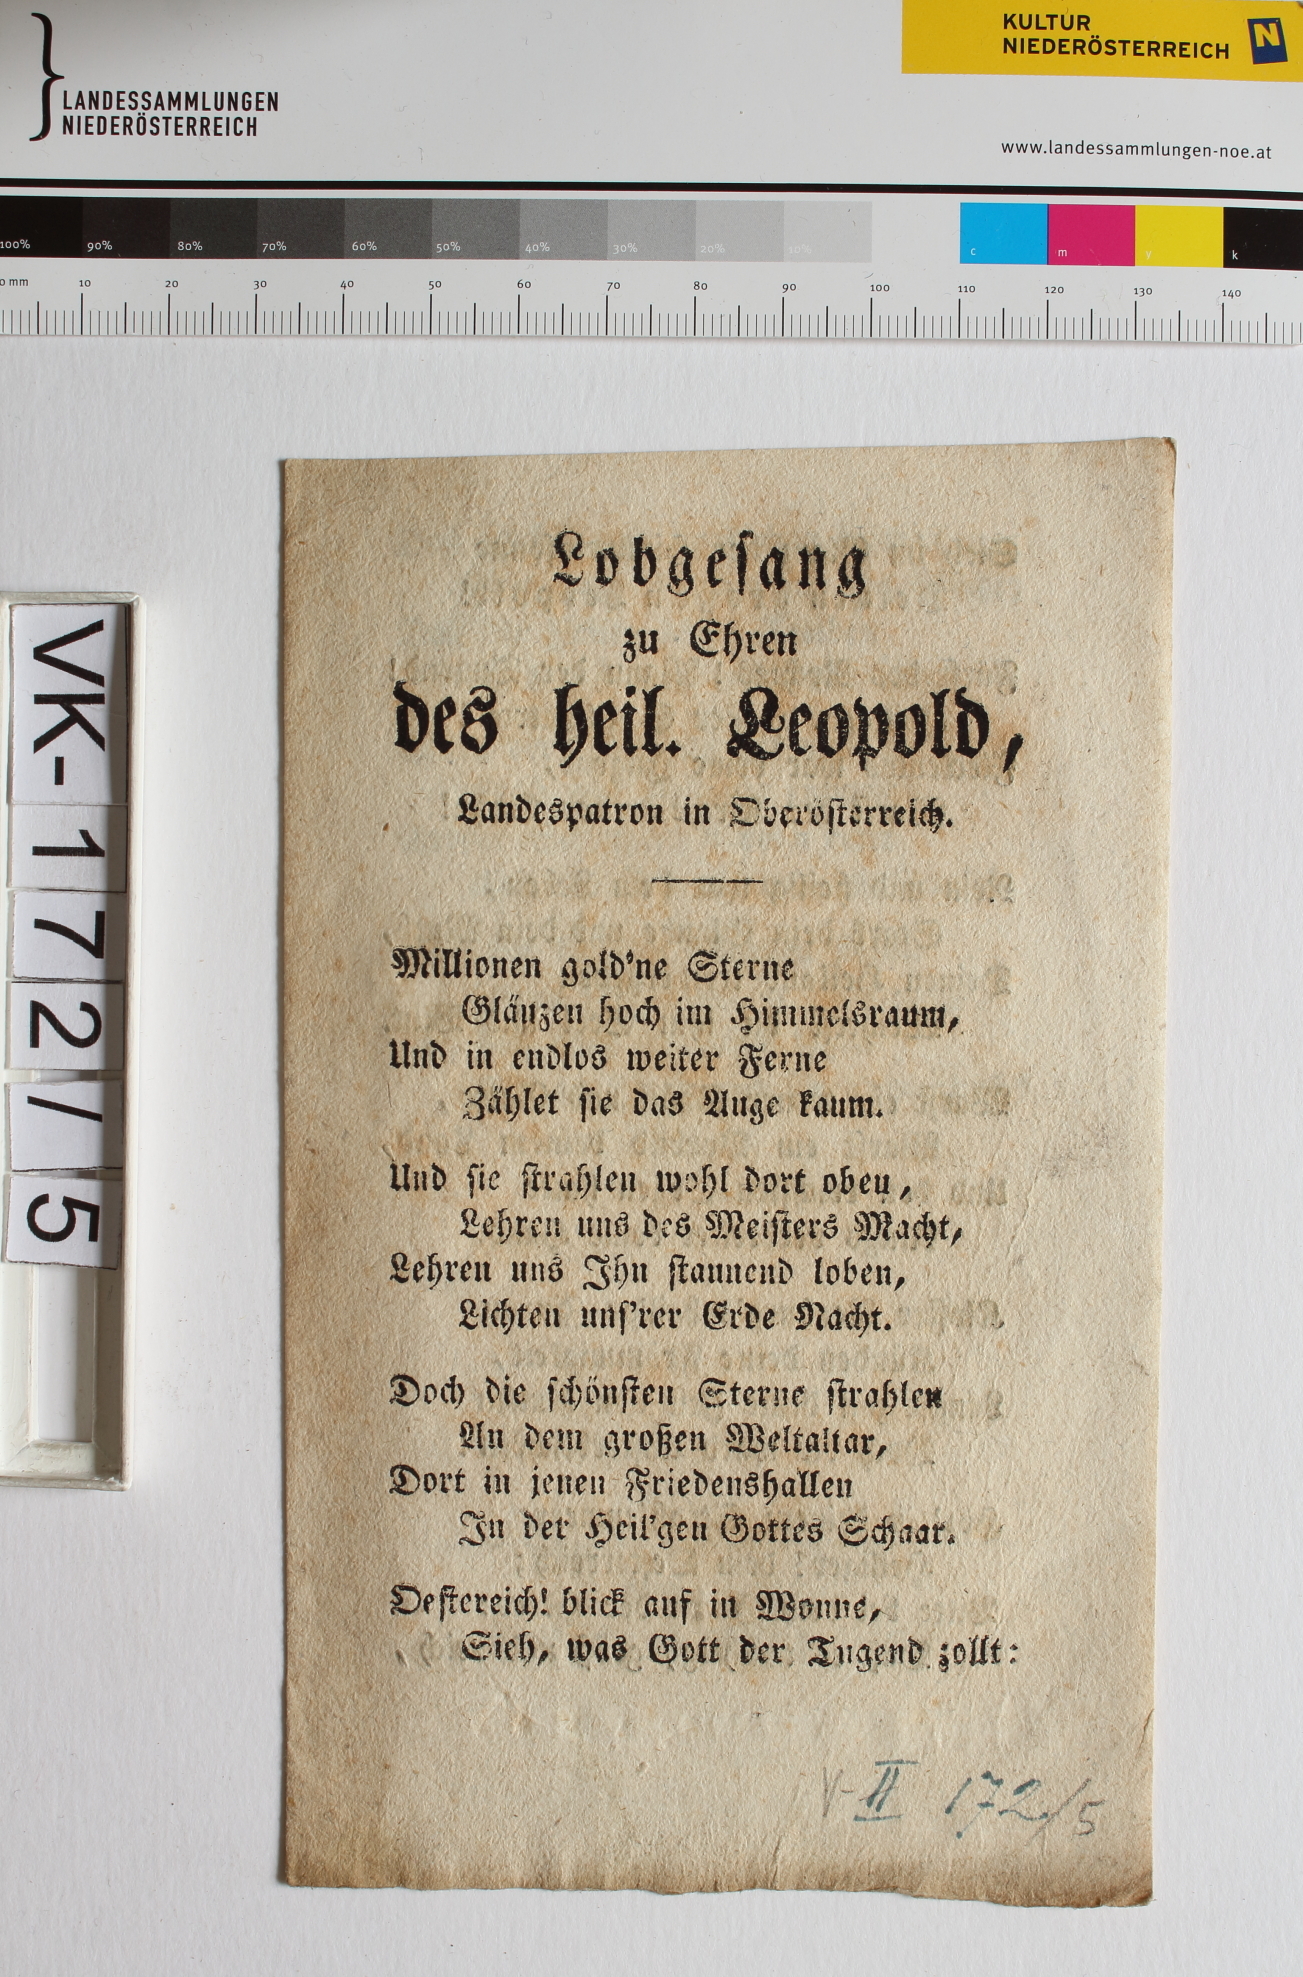 LANDESSAMMLUNGEN
NIEDERÖSTERREICH
KULTUR
NIEDERÖSTERREICH
N
www.landessammlungen-noe.at
100% 90% 80% 70% 60% 50% 40% 30% 20% 10% c m y k
0 mm 10 20 30 40 50 60 70 80 90 100 110 120 130 140
VK-172/5
Lobgesang
zu Ehren
des heil. Leopold,
Landespatron in Oberösterreich.
Millionen gold'ne Sterne
Glänzen hoch im Himmelsraum,
Und in endlos weiter Ferne
Zählet sie das Auge kaum.
Und sie strahlen wohl dort oben,
Lehren uns des Meisters Macht,
Lehren uns Ihn staunend loben,
Lichten uns'rer Erde Nacht.
Doch die schönsten Sterne strahlen
An dem großen Weltaltar,
Dort in jenen Friedenshallen
In der Heil'gen Gottes Schaar.
Oestereich! blick auf in Wonne,
Sieh, was Gott der Tugend zollt:
V-II 172/5